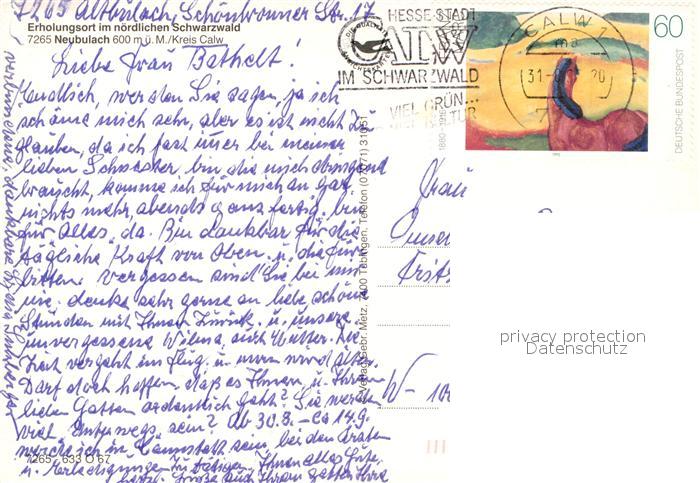 7265 Altbulach, Schönbronner Str. 17
Erholungsort im nördlichen Schwarzwald
7265 Neubulach 600 m ü. M./Kreis Calw
Liebe Frau Bathelt!
Endlich, werden Sie sagen, ja ich
schäme mich sehr, aber es ist nicht zu
glauben, da ich fast immer bei meiner
lieben Schwester bin, die mich dringend
braucht, komme ich für mich zu gar
nichts mehr, abends ganz fertig, bin
für Alles da. Bin dankbar für die
tägliche Kraft von Oben u. die für
bitten. Vergessen sind Sie bei mir
nie, denke sehr gerne an liebe schöne
Stunden mit Ihnen zurück u. unsere
unvergessene Wilma, auch Mutter. Die
Zeit vergeht im Flug u. man wird älter
Darf doch hoffen, daß es Ihnen u. Ihrem
lieben Gatten ordentlich geht? Sie werden
viel Unterwegs sein? Ab 30.8. – Ca 14.9.
werde ich in Cannstatt sein bei den Ärzten
u. Erledigungen zu tätigen. Ihnen alles Gute
herzl. Grüße auch Ihrem Gatten Ihre
verbundene, dankbare
7265 - 633 O 67
HESSE-STADT
CALW
IM SCHWARZWALD
VIEL GRÜN...
VIEL KULTUR
CALW 1
31
20
60
DEUTSCHE BUNDESPOST
Verlag Gebr. Metz, 7400 Tübingen, Telefon
Frau
W - 10
privacy protection
Datenschutz